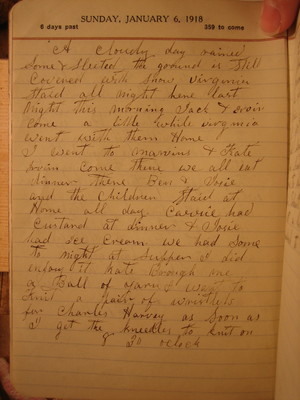 SUNDAY, JANUARY 6, 1918
6 days past 359 to come
A Cloudy day rained
Some & Sleeted the ground is Still
Covered with Snow virginia
Staid all night here last
Night this morning Jack &
Come a little while virginia
went with them Home
I went to Marvins & Kate
Come there we all eat
dinner there Ben & Josie
and the Children Staid at
Home all day Carrie had
Custard at dinner & Josie
had ice Cream we had Some
to night at Supper I did
enjoy it Kate Brough me
a Ball of yarn I went to
knit a pair of wristlets
for Charles Harvey as Soon as
I get the kneedles to knit on
8 20 oclock